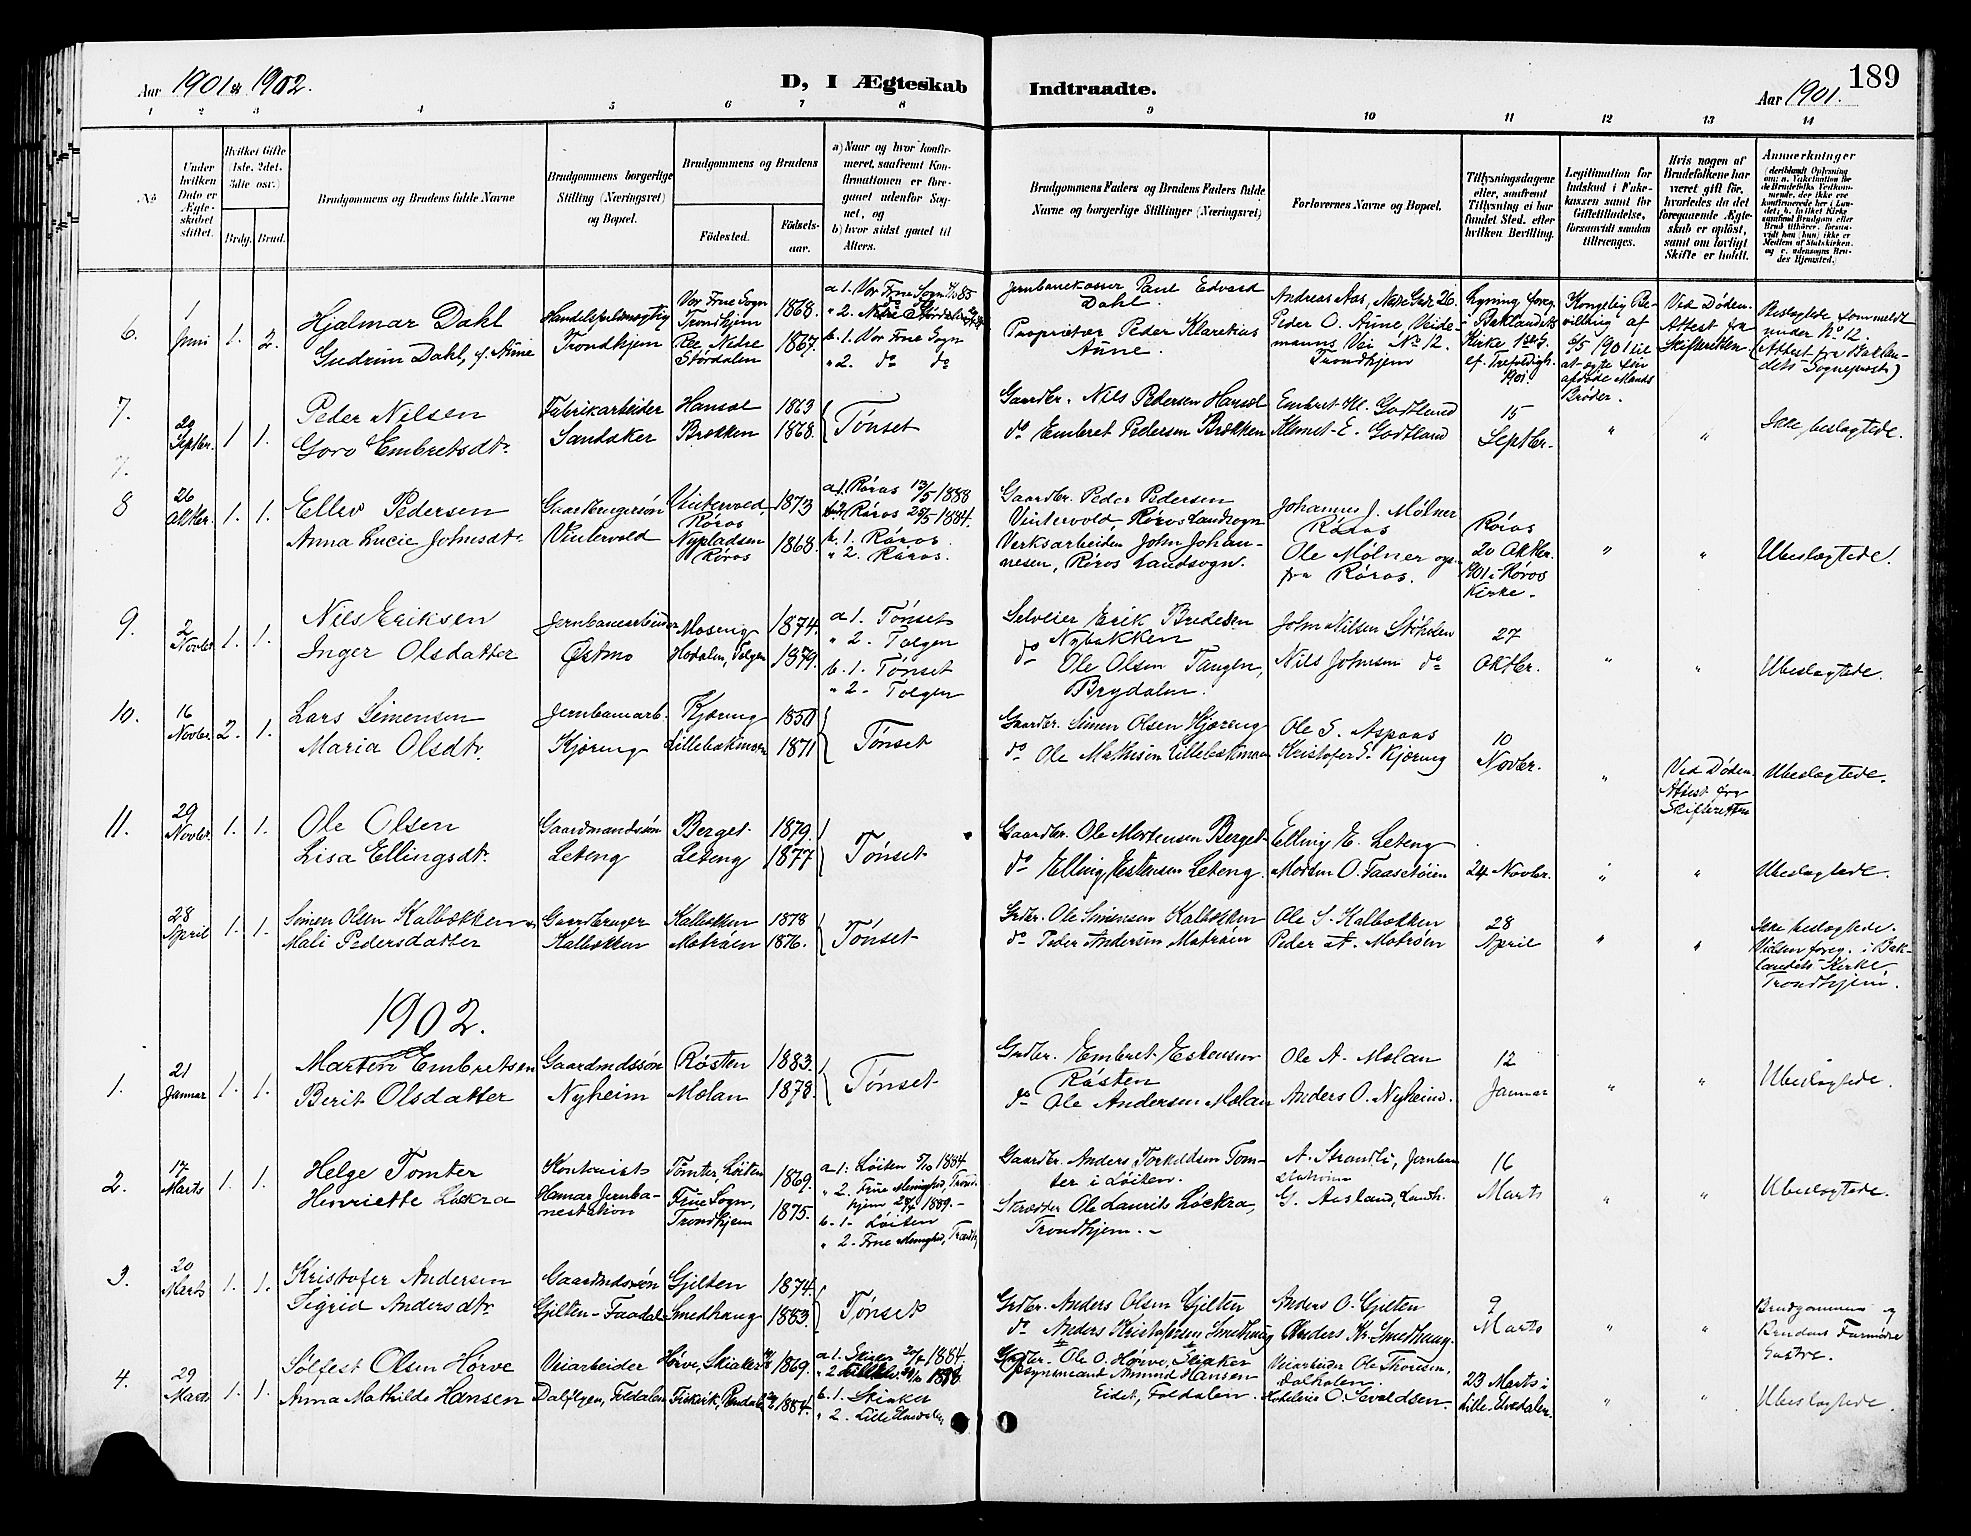 Aar 1901 & 1902.
D, I Ægteskab Indtraadte.
Aar 1901.
189
1 2 3 4 5 6 7 8 9 10 11 12 13 14
No
Under hvilken Dato er Ægteskabet stiftet.
Hvilket Gifte (1ste, 2det, 3die osv.)
Brdg. Brud.
Brudgommens og Brudens fulde Navne
Brudgommens borgerlige Stilling (Næringsvei) og Bopæl.
Brudgommens og Brudens
Fødested.
Fødselsaar.
a) Naar og hvor konfirmeret, saafremt Konfirmationen er foregaaet udenfor Sognet, og
b) hvor sidst gaaet til Alters.
Brudgommens Faders og Brudens Faders fulde Navne og borgerlige Stillinger (Næringsvei)
Forlovernes Navne og Bopæl.
Tillysningsdagene eller, saafremt Tillysning ei har fundet Sted, efter hvilken Bevilling.
Legitimation for Indskud i Enkekassen samt for Giftetilladelse, forsaavidt saadan tiltrænges.
Hvis nogen af Brudefolkene har været gift før, hvorledes da det foregaaende Ægteskab er opløst, samt om lovligt Skifte er holdt.
Anmerkninger
6. Juni 1. 2.
Hjalmar Dahl
Gudrun Dahl, f. Aune
Trondhjem
Vor Frue Sogn Trondhjem 1868.
Nedre Stördalen 1867.
b. 1. Vor Frue Sogn
" 2. do do
Jernbanekasser Paul Edvard Dahl.
Proprietær Peder Klaretius Aune.
Andreas Aas,
Peder O. Aune, Veidemanns Vei No 12. Trondhjem
Lysning foreg. i Baklandets Kirke
1901.
Kongelig Bevilling af 1901 til at ægte sin afdøde Mands Broder.
Ved Døden. Attest fra Skifteretten.
Beslægtede som meldt under No 12.
(Attest fra Baklandets Sogneprest)
7. 29 Septbr. 1 1.
Peder Nilsen
Goro Embretsdtr.
Fabrikarbeider
Sandaker
Hansöl 1863
Brækken 1868.
Tönset
Gaardbr. Nils Pedersen Hansöl
do Embret Pedersen Brækken
Embret H. Godtland
Klemet E. Godtland
15 Septbr.
" "
Ikke beslægtede.
7.
8 26 Oktbr. 1. 1.
Eller Pedersen
Anna Lucie Johnsdtr.
Gaardbrugersön
Vintervold
Vintervold, Röros 1873
Nypladsen Röros 1868.
a. 1. Röros 13/5 1888
Röros 1884.
b. 1. Röros.
" 2. Röros.
Gaardbr. Peder Pedersen Vintervold, Röros Landsogn
Verksarbeider John Johannesen, Röros Landsogn.
Johannes J. Mölner Röros
Ole Mölner fra Röros.
Röros 20 Oktbr. 1901 i Röros Kirke.
" "
Ubeslægtede.
9. 2 Novbr 1. 1.
Nils Eriksen
Inger Olsdatter
Jernbanearbeider
Østmo
Moseng 1874.
Hodalen, Tolgen 1879.
a 1. Tönset
" 2. Tolgen
b. 1. Tönset
" 2. Tolgen
Selveier Erik Bredesen Nybakken
do Ole Olsen Tangen, Brydalen.
John Nilsen Stöholen
Nils Johnsen do
27 Oktbr.
" "
Ubeslægtede.
10. 16 Novbr 2. 1.
Lars Simensen
Maria Olsdtr.
Jernbanearb.
Kjæreng
Kjæreng 1850
Lillebækmoen 1871
Tönset
Gaardbr. Simen Olsen Kjæreng
do Ole Mathisen Lillebækmoen
Ole S. Aspaas
Kristofer S. Kjæreng
10 Novbr.
"
Ved Døden. Attest fra Skifteretten
Ubeslægtede.
11. 29 Novbr. 1. 1.
Ole Olsen
Lisa Ellingsdtr.
Gaardmandssön
Leteng
Berget 1879.
Leteng 1877
Tönset
Gaardbr. Ole Mortensen Berget
do Elling Estensen Leteng.
Elling E. Leteng
Morten O. Faasetöien
24 Novbr.
" "
Ubeslægtede.
28 April 1. 1.
Simen Olsen Kalbækken
Mali Pedersdatter
Gaardbruger
Kalbækken
Kalbækken 1878
Motröen 1876.
Tönset
Grdbr. Ole Simensen Kalbækken
do Peder Andersen Motröen
Ole S. Kalbækken
Peder A. Motröen
28 April
" "
Ikke beslægtede.
Vielsen foreg. i Baklandets Kirke Trondhjem.
1902.
1. 21 Januar 1. 1.
Marten Embretsen
Berit Olsdatter
Gaardmdssön
Nyheim
Røsten 1883.
Mælan 1878.
Tönset
Grdbr. Embret Estensen Røsten
do Ole Andersen Mælan
Ole A. Mælan
Anders O. Nyheim.
12 Januar
" "
Ubeslægtede.
2. 17 Marts 1. 1.
Helge Tomter
Henriette Lockra
Kontorist
Hamar Jernbanestation
Tomter, Löiten 1869.
Frue Sogn, Trondhjem 1875.
a 1. Löiten 5/10 1884.
" 2. Frue Menighed, Trondhjem 1889.
b. 1. Löiten
" 2. Frue Menighed, Trondhj.
Gaardbr. Anders Torkeldsen Tomter i Löiten.
Skrædder Ole Laurits Lockra, Trondhjem.
A. Strandli,
G. Aasland,
16 Marts
" "
Ubeslægtede.
3. 20 Marts 1. 1.
Kristofer Andersen
Sigrid Andersdtr
Gaardmdssön
Gjelten - Faadal
Gjelten 1874.
Smedhaug 1883.
Tönset
Grdbr. Anders Olsen Gjelten
do Anders Kristofersen Smedhaug
Anders O. Gjelten
Anders Kr. Smedhaug.
9 Marts
" "
Brudgommens og Brudens Farmödre Søstre.
4. 29 Marts 1. 1.
Sölfest Olsen Hörve
Anna Mathilde Hansen
Veiarbeider
Foldalen
Hörve, Skiaker 1869.
1884.
a 1. Skiaker 1884.
b. 1. Skiaker
" 2. Lille Elvedalen
Grdbr. Ole O. Hörve, Skiaker
Amund Hansen Eidet, Foldalen.
Veiarbeider Ole Thoresen, Dalholen.
O. Sevaldsen.
23 Marts i Lille-Elvedalen.
" "
Ubeslægtede.